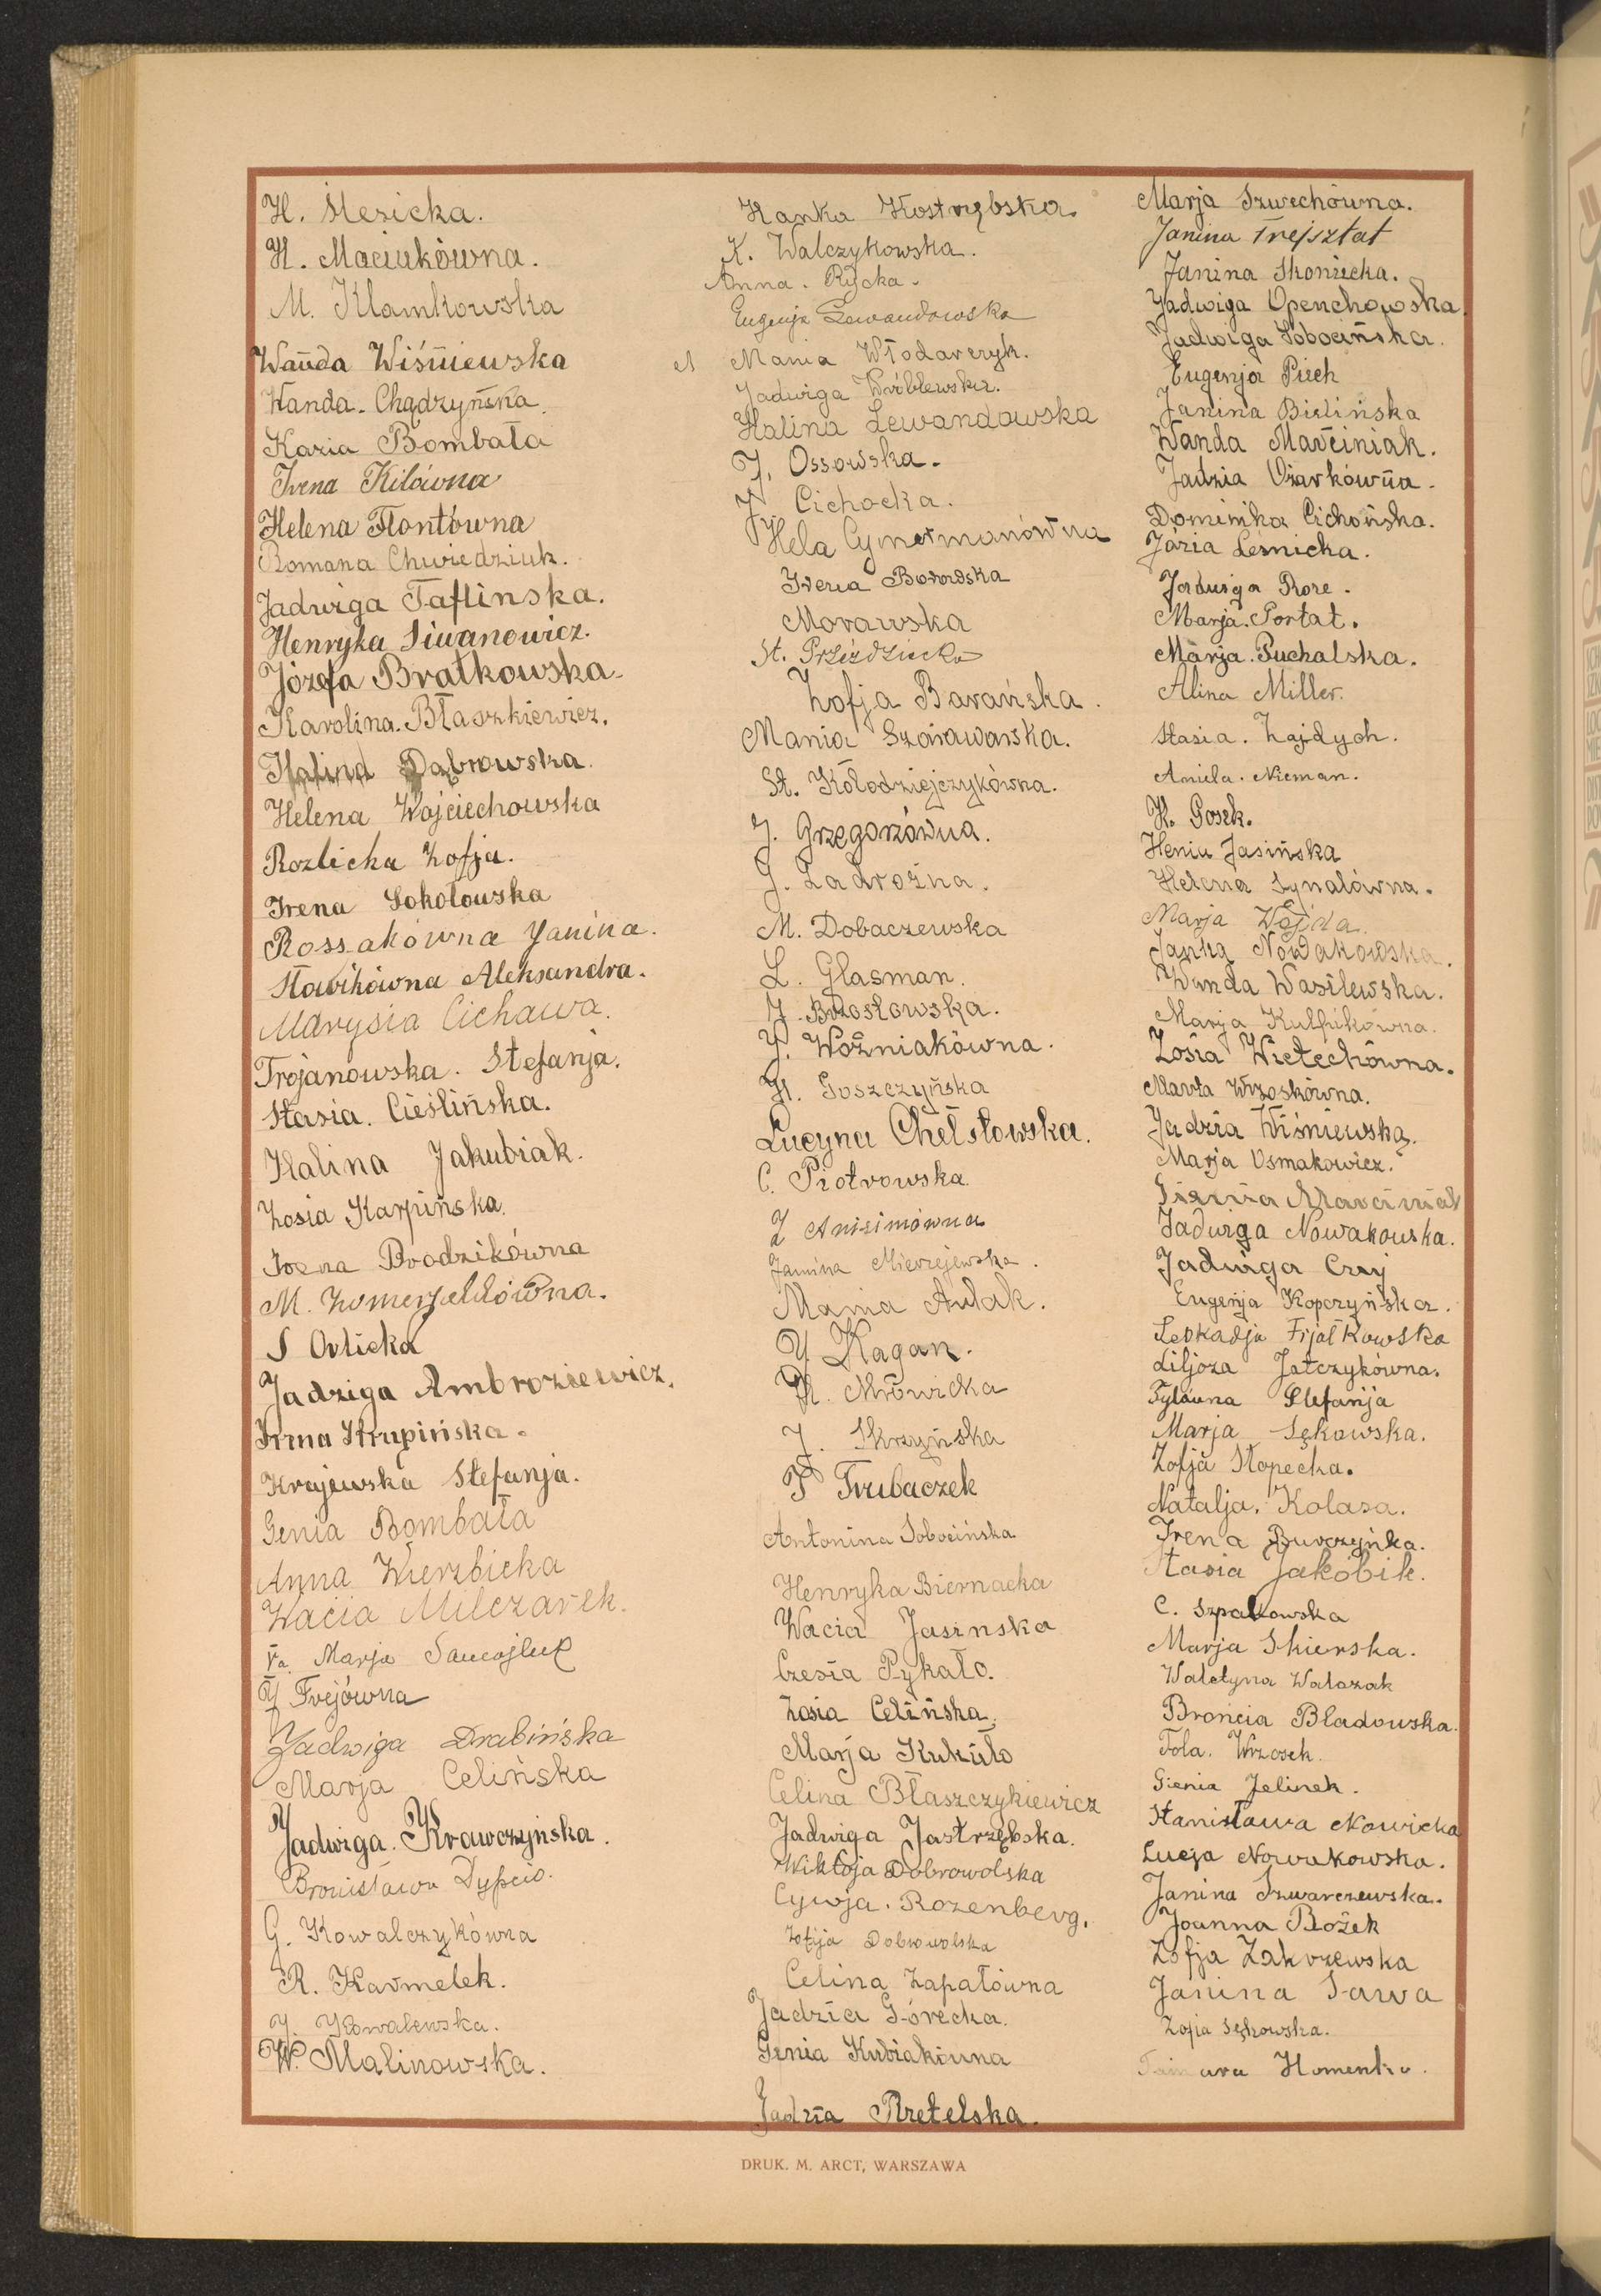 H. Ślesicka.
H. Maciukówna.
M. Klamkowska
Wanda Wiśniewska
Wanda. Chądzyńska.
Kazia Bombała
Irena Kilówna
Helena Flontówna
Romana Chwiedziuk.
Jadwiga Taflinska.
Henryka Siwanowicz.
Józefa Bratkowska.
Karolina. Błaszkiewicz.
Halina Dąbrowska.
Helena Wojciechowska
Rozlicka Zofja.
Irena Sokołowska
Rossakówna Janina.
Sławikówna Aleksandra.
Marysia Cichawa.
Trojanowska. Stefanja.
Stasia. Cieślińska.
Halina Jakubiak.
Zosia Karpińska.
Irena Brodzikówna
M.
S Orlicka
Jadziga Ambroziewicz.
Irma Krupińska.
Krajewska Stefanja.
Genia Bombała
Anna Wierzbicka
Wacia Milczarek.
Marja
J Frejówna
Jadwiga Drabińska
Marja Celińska
Jadwiga. Krawczynska.
Bronisława
G. Kowalczykówna
R. Karmelek.
J. Kowalewska.
W. Malinowska.
Hanka Kostrzębska.
K. Walczykowska.
Anna. Rycka.
Eugenja Lewandowska
Mania Włodarczyk.
Jadwiga Wróblewska.
Halina Lewandowska
J. Ossowska.
J. Cichocka.
Hela Cymermanówna
Irena Borowska
Morawska
St. Przeździecka
Zofja Barańska.
Mania Szarawarska.
St. Kołodziejczykówna.
J. Grzegorzówna.
G. Zadrożna.
M. Dobaczewska
L. Glasman.
J. Brzosłowska.
J. Woźniakówna.
H. Goszczyńska
Lucyna Chełstowska.
C. Piotrowska.
Z Anisimówna
Janina Mierzejewska.
Mania Antak.
J Kagan.
H. Mrowicka
J. Skrzyńska
P Trubaczek
Antonina Sobocińska
Henryka Biernacka
Wacia Jasinska
Czesia Pykało.
Zosia Celińska.
Marja Kukuło
Celina Błaszczykiewicz
Jadwiga Jastrzębska.
Wiktoja Dobrowolska
Cywja. Rozenberg.
Zofija Dobrowolska
Celina Zapałówna
Jadzia Górecka.
Genia Kubiakówna
Jadzia Rzetelska.
Marja Szwechówna.
Janina Frejsztat
Janina Skoniecka.
Jadwiga Openchowska.
Jadwiga Sobocińska.
Eugenja Piech
Janina Bielińska
Wanda Marciniak.
Jadzia Ożarkówna.
Dominika Cichońska.
Józia Leśnicka.
Jadwiga Roze.
Marja. Portat.
Marja. Puchalska.
Alina Miller.
Stasia. Zajdych.
Aniela. Nieman.
K. Gosek.
Henia Jasińska
Helena Synalówna.
Marja Wojda.
Janka Nowakowska.
Wanda Wasilewska.
Marja Kulpikówna.
Zosia Wietechówna.
Marta Wrzoskówna.
Jadzia Wiśniewska.
Marja Osmakowicz.
Marciniak
Jadwiga Nowakowska.
Jadwiga Czyj
Eugenja Kopczyńska.
Leokadja Fijałkowska
Liljoza Jatczykówna.
Tylówna Stefanija
Marja Sękowska.
Zofja Stopecka.
Natalja. Kolasa.
Irena Burczyńka.
Stasia Jakóbik.
C. Szpakowska
Marja Skierska.
Waletyna Walczak
Broncia Bladowska.
Tola. Wrzosek.
Gienia Jelinek.
Stanisława Nowicka
Lucja Nowakowska.
Janina Szwarczewska.
Joanna Bożek
Zofja Zakrzewska
Janina Sawa
Zofja Sękowska.
Tamara Homenko.
DRUK. M. ARCT, WARSZAWA